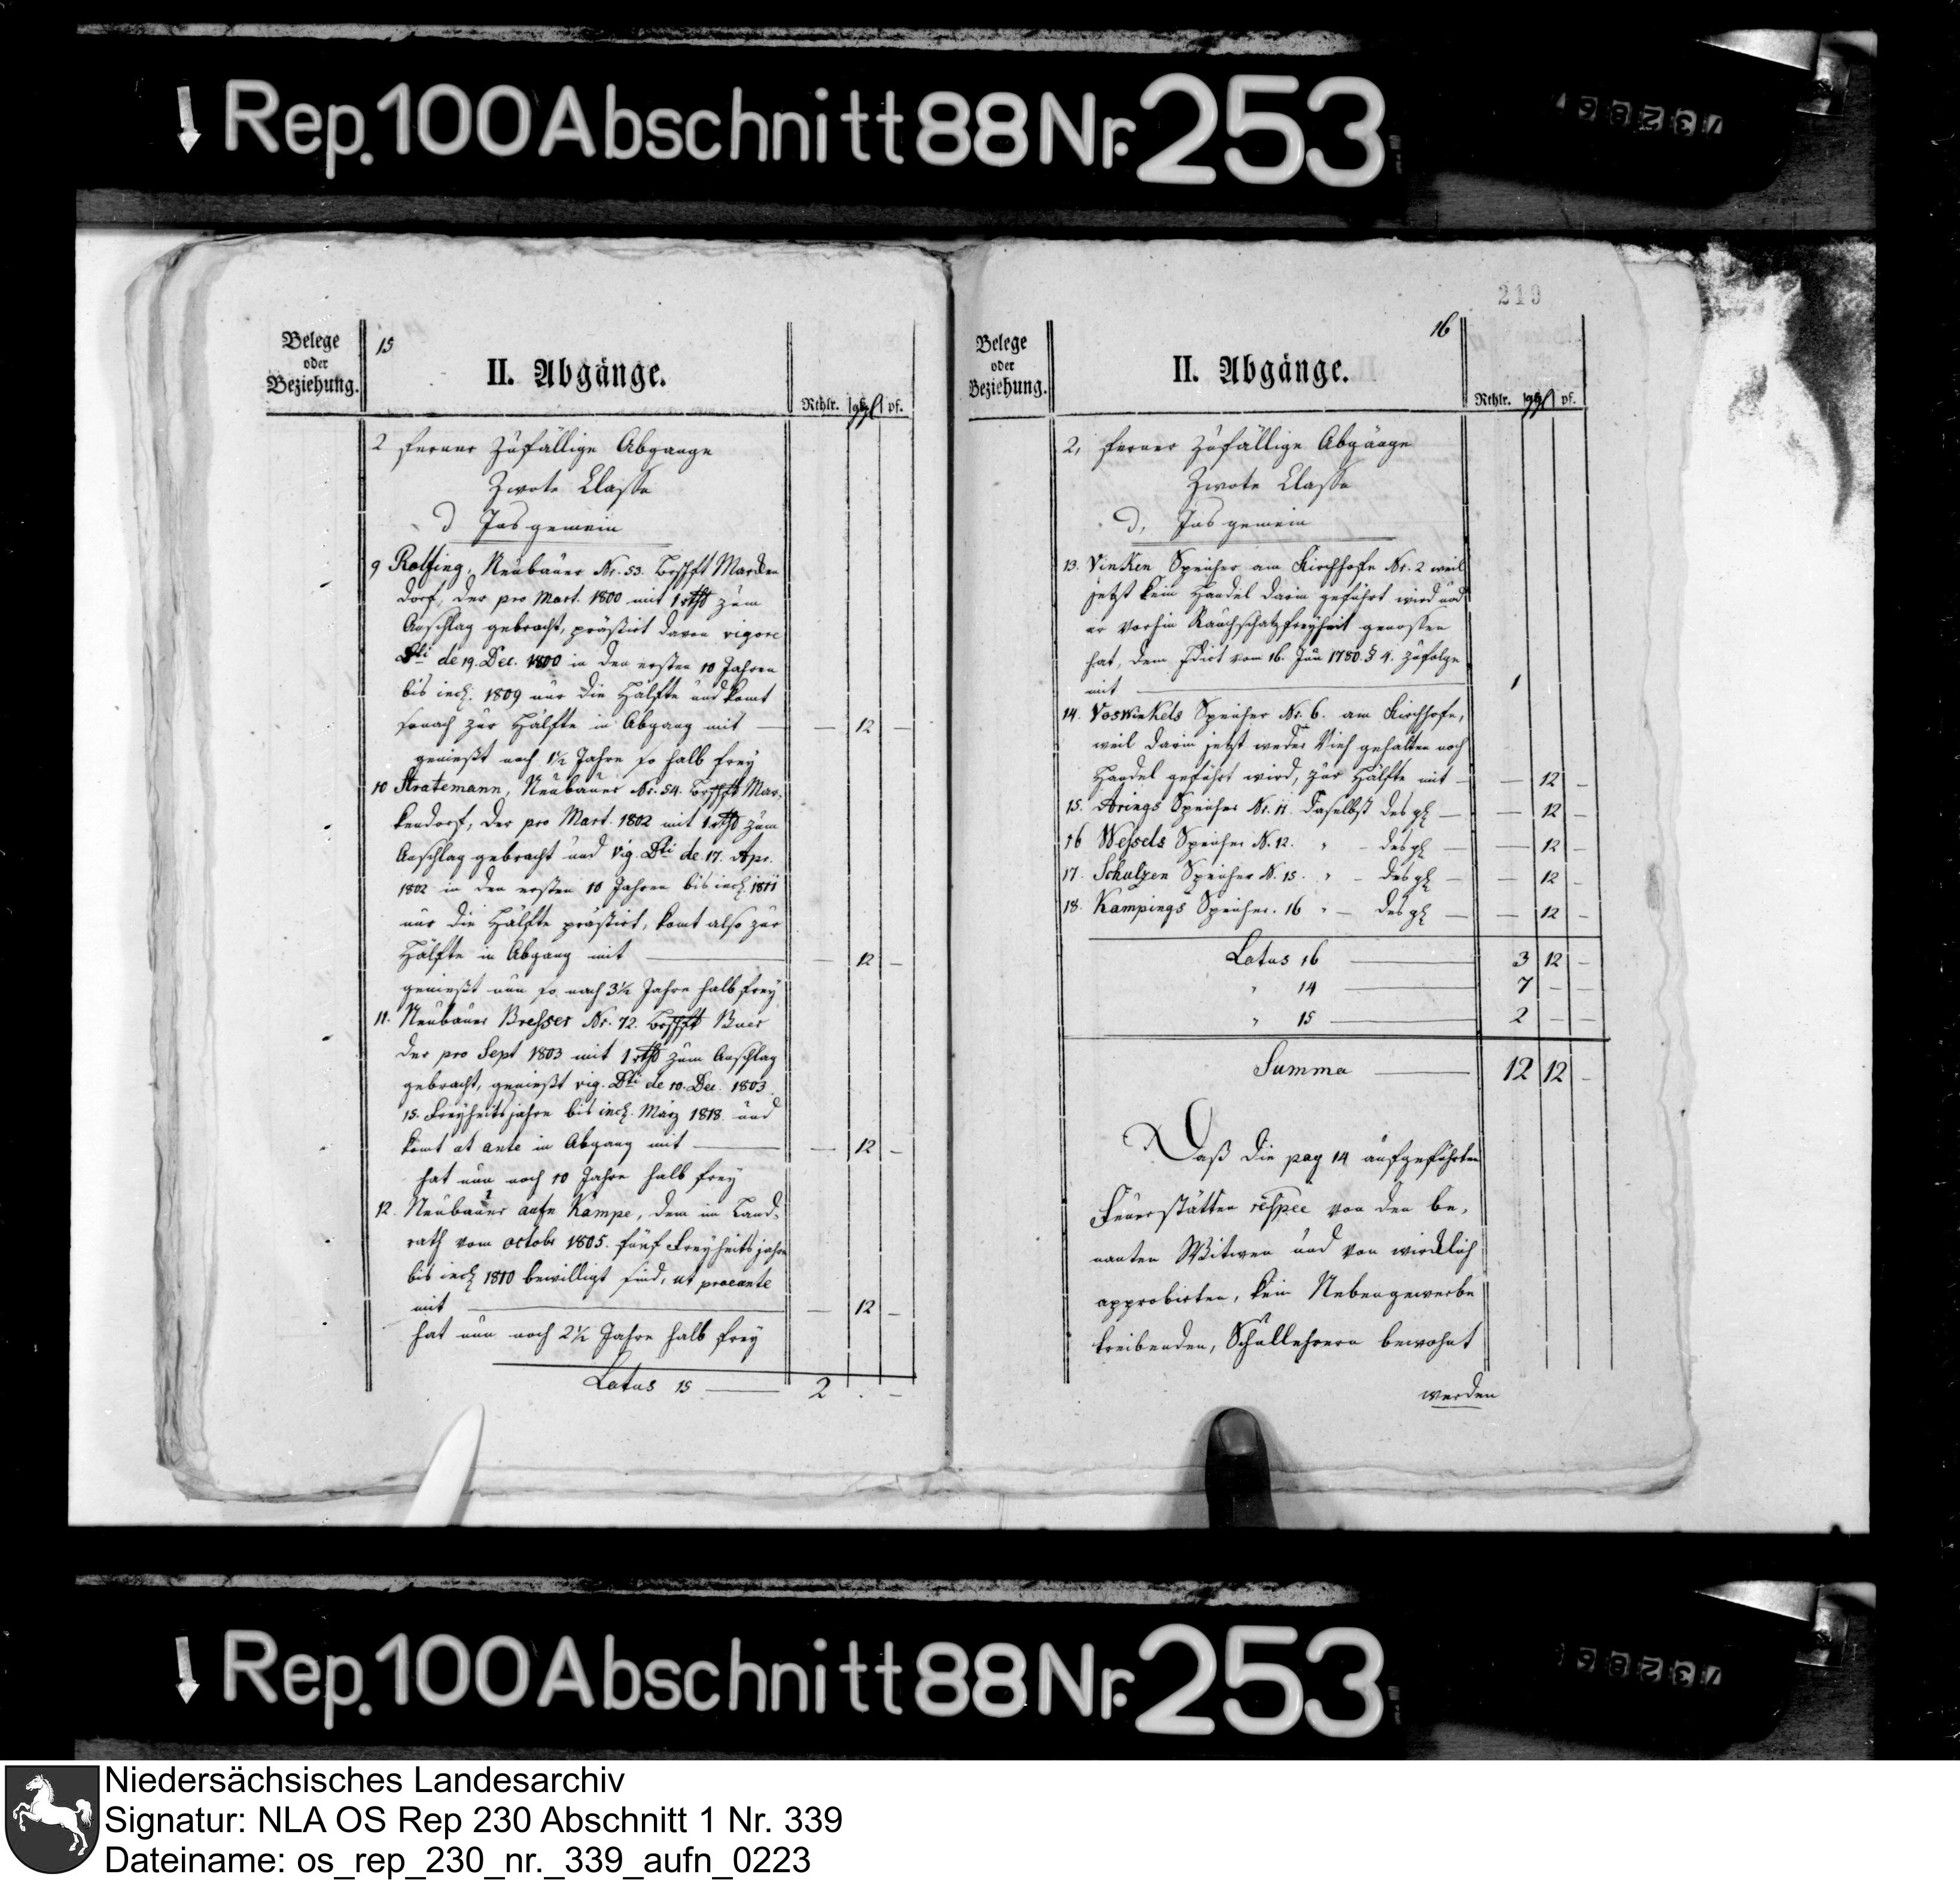 Rep. 100 Abschnitt 88 Nr. 253
219
Belege
oder
Beziehung.
15
II. Abgänge.
Rthlr. ggl pf.
2 ferner Zufällige Abgange
Zwote Classe
d Ins gemein
9 Rolfing, Neubauer Nr. 53. Brschft Marken
dorf, der pro Mart. 1800 mit 1 rth zum
Anschlag gebracht, prästirt davon vigore
Dti de 19. Dec. 1800 in den ersten 10 Jahren
bis incl. 1809 nur die Hälfte und komt
sonach zur Hälfte in Abgang mit — — 12 —
genießt noch 1½ Jahre so halb frey
10 Stratemann, Neubauer Nr. 54. Brschft Mar-
kendorf, der pro Mart. 1802 mit 1 rth zum
Anschlag gebracht und vig. Dti de 17. Apr.
1802 in den ersten 10 Jahren bis incl. 1811
nur die Hälfte prästirt, komt also zur
Hälfte in Abgang mit — — 12 —
genießt nun so noch 3½ Jahre halb frey
11. Neubauer Bresser Nr. 72. Brschft Buer
der pro Sept 1803 mit 1 rth zum Anschlag
gebracht, genießt vig. Dti de 10. Dec. 1803.
15. Freyheitsjahre bis incl. März 1818. und
komt ut ante in Abgang mit — — 12 —
hat nun noch 10 Jahre halb frey
12. Neubauer aufn Kampe, dem im Land-
rath vom octobr 1805. fünf Freyheitsjahre
bis incl 1810 bewilligt sind, ut praeante
mit — — 12 —
hat nun noch 2½ Jahre halb frey
Latus 15 — 2 . —
Belege
oder
Beziehung.
16
II. Abgänge.
Rthlr. ggl pf.
2, ferner Zufällige Abgänge
Zwote Classe
d, Ins gemein
13. Vinken Speicher am Kirchhofe Nr. 2 weil
jetzt kein Handel darin geführt wird und
er vorhin Rauchschatzfreyheit genossen
hat, dem Edict vom 16. Jun 1780. § 4. zufolge
mit — 1
14. Voswinkels Speicher Nr. 6. am Kirchhofe,
weil darin jetzt weder Vieh gehalten noch
Handel geführt wird, zur Hälfte mit — — 12 —
15. Arings Speicher Nr. 11. daselbst desgl — — 12 —
16 Wessels Speicher N. 12. " — desgl — — 12 —
17. Schulzen Speicher N. 15. " — desgl — — 12 —
18. Kampings Speicher. 16 " — desgl — — 12 —
Latus 16 — 3 12 —
" 14 — 7 — —
" 15 — 2 — —
Summa — 12 12 —
Daß die pag 14 aufgeführten
Feuerstätten respee von den be-
nanten Witwen und von wircklich
approbirten, kein Nebengewerbe
treibenden, Schullehrern bewohnt
werden
Rep. 100 Abschnitt 88 Nr. 253
Niedersächsisches Landesarchiv
Signatur: NLA OS Rep 230 Abschnitt 1 Nr. 339
Dateiname: os_rep_230_nr._339_aufn_0223